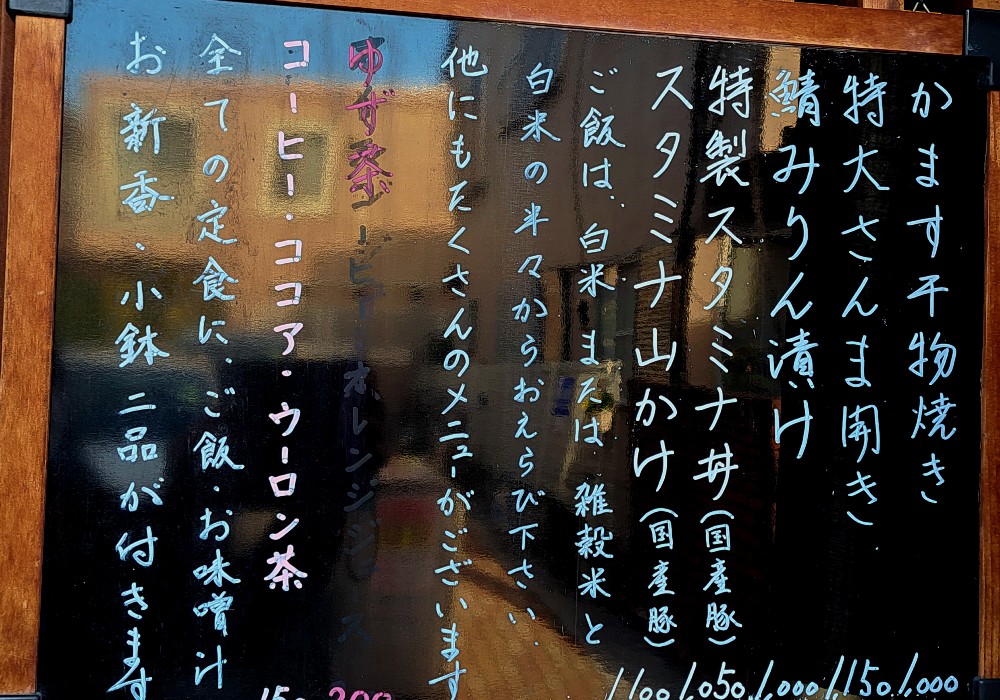 かます干物焼き 1,000
特大さんま開き 1,150
鯖みりん漬け 1,000
特製スタミナ丼(国産豚) 1,050
スタミナ山かけ(国産豚) 1,100
ご飯は、白米 または 雑穀米と
白米の半々からおえらび下さい.
他にもたくさんのメニューがございます
ゆず茶 200
コーヒー・ココア・ウーロン茶 150
全ての定食に、ご飯・お味噌汁
お新香・小鉢二品が付きます